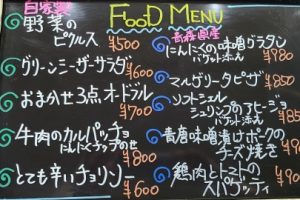 FOOD MENU
自家製
野菜の
ピクルス
¥500
グリーンシーザーサラダ
¥600
おまかせ3点オードブル
¥700
牛肉のカルパッチョ
にんにくチップのせ
¥800
とても辛いチョリソー
¥600
青森県産
にんにくの味噌グラタン
バゲット添え
¥980
マルゲリータピザ
¥850
ソフトシェル
シュリンプのアヒージョ
バゲット添え
¥85
青唐味噌漬けポークの
チーズ焼き
¥90
鶏肉とトマトの
スパゲッティ
¥980